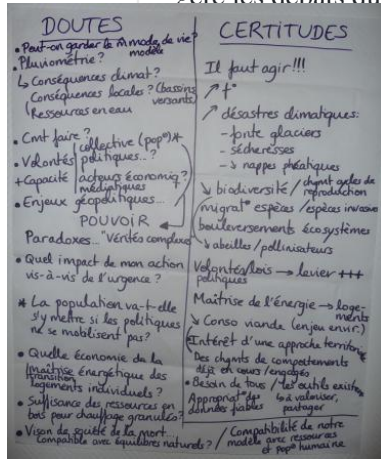 DOUTES
• Peut-on garder le m̂ mode de vie?
modèle
• Pluviométrie?
↳ Conséquences climat?
Conséquences locales? (bassins versants)
Ressources en eau
• Cmt faire?
• Volontés collective (pop°)*
politiques...?
+ Capacité acteurs économiq?
médiatiques
• Enjeux géopolitiques...
POUVOIR
Paradoxes... Vérités complexes
• Quel impact de mon action
vis-à-vis de l'urgence?
* La population va-t-elle
s'y mettre si les politiques
ne se mobilisent pas?
• Quelle économie de la
maîtrise énergétique des
transition
logements individuels?
• Suffisance des ressources en
bois pour chauffage granulés?
• Vison de société de la mort...
compatible avec équilibres naturels?
CERTITUDES
Il faut agir!!!
↗ t°
↗ désastres climatiques:
- fonte glaciers
- sécheresses
- ↘ nappes phéatiques
↘ biodiversité / chgmt cycles de reproduction
migrat° espèces / espèces invasives
bouleversements écosystèmes
↘ abeilles / pollinisateurs
Volontés/lois → levier +++
politiques
Maîtrise de l'énergie → logements
↘ Conso viande (enjeu envir.)
Intérêt d'une approche territor.
Des chgmts de comportements
déjà en cours / engagés
• Besoin de tous / les outils existent
Appropriat° des données fiables
à valoriser, partager
/ Compatibilité de notre
modèle avec ressources
et pop° humaine